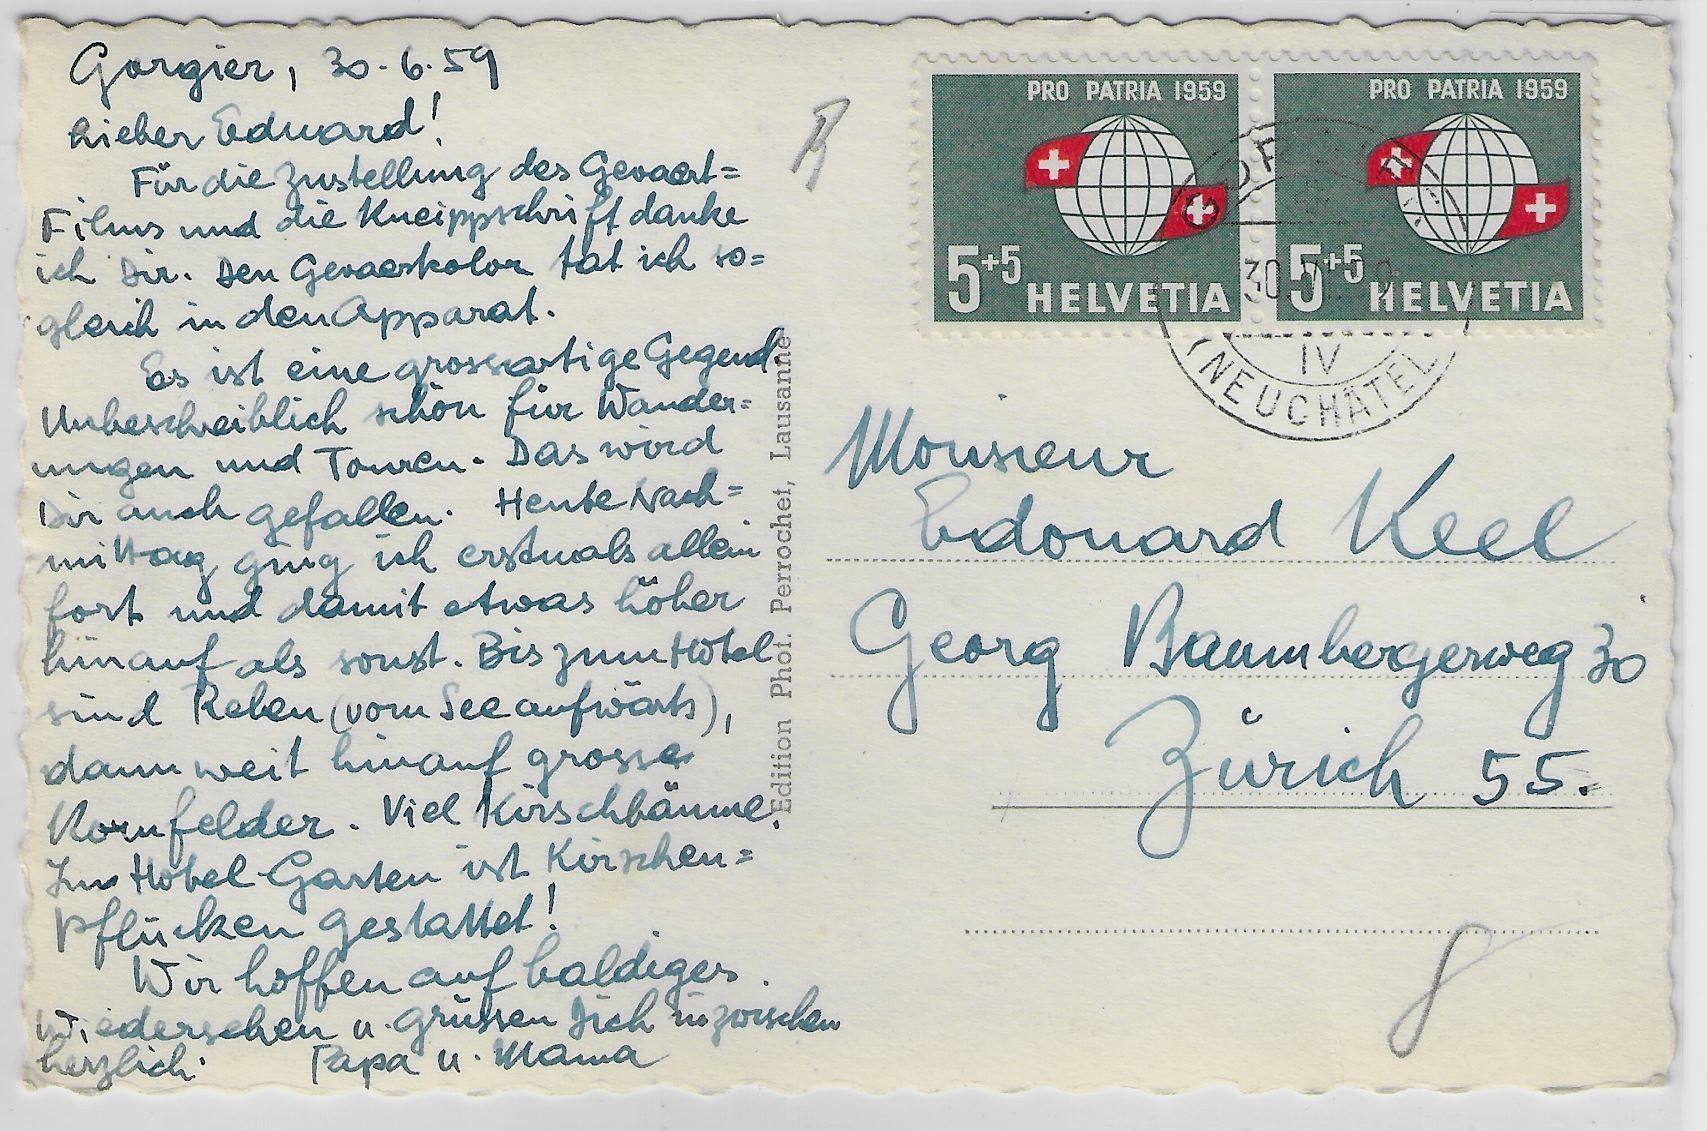 Gorgier, 30.6.59
Lieber Eduard!
Für die Zustellung des Gevaert=
Films und die Kneippschrift danke
ich Dir. Den Gevaerkolor tat ich so=
gleich in den Apparat.
Es ist eine grossartige Gegend.
Unbeschreiblich schön für Wander=
ungen und Touren. Das wird
Dir auch gefallen. Heute Nach=
mittag ging ich erstmals allein
fort und damit etwas höher
hinauf als sonst. Bis zum Hotel
sind Reben (vom See aufwärts),
dann weit hinauf grosse
Kornfelder. Viel Kirschbäume.
Im Hotel-Garten ist Kirschen=
pflücken gestattet!
Wir hoffen auf baldiges
Wiedersehen u. grüssen Dich inzwischen
herzlich. Papa u. Mama
Edition Phot. Perrochet, Lausanne
PRO PATRIA 1959
5+5 HELVETIA
PRO PATRIA 1959
5+5 HELVETIA
30.
IV
(NEUCHÂTEL)
Monsieur
Edouard Keel
Georg Baumbergerweg 30
Zürich 55.
8